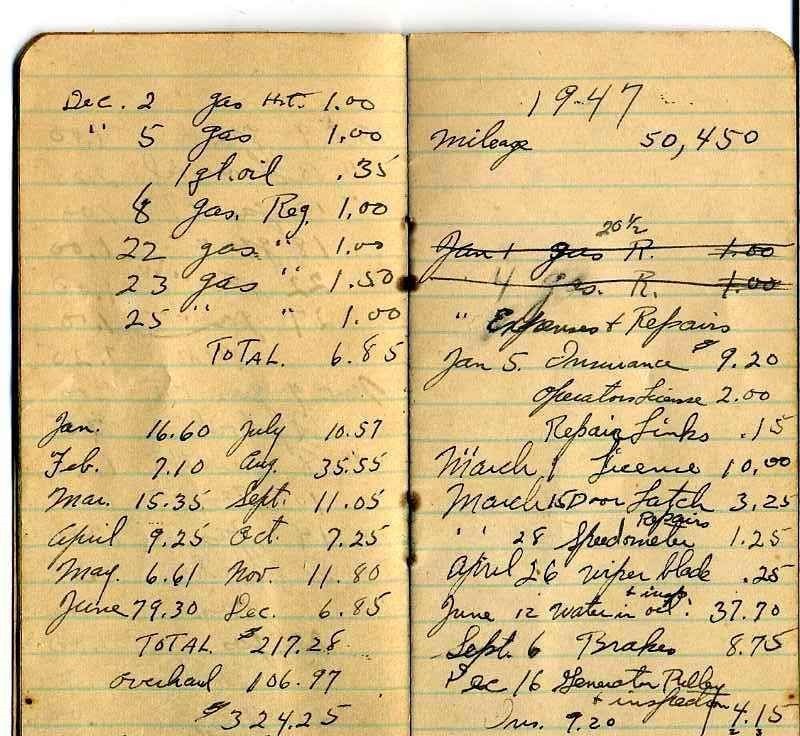 Dec. 2 gas Ht. 1.00
" 5 gas 1.00
1 gl. oil .35
8 gas. Reg. 1.00
22 gas " 1.00
23 gas " 1.50
25 " " 1.00
TOTAL. 6.85
Jan. 16.60 July 10.57
Feb. 7.10 Aug. 35.55
Mar. 15.35 Sept. 11.05
April 9.25 Oct. 7.25
May. 6.61 Nov. 11.80
June 79.30 Dec. 6.85
TOTAL $217.28
overhaul 106.97
$324.25
1947
Mileage 50,450
20 1/2
Jan 1 gas R. 1.00
4 gas. R. 1.00
" Expenses + Repairs
Jan 5. Insurance $9.20
operators License 2.00
Repair Links .15
March 1 Licence 10.00
March 15 Door Latch 3.25
Repairs
" 28 Speedometer 1.25
April 26 wiper blade .25
+ insp.
June 12 Water in oil: 37.70
Sept. 6 Brakes 8.75
Dec 16 Generator Pulley
+ inspection 4.15
Ins. 9.20